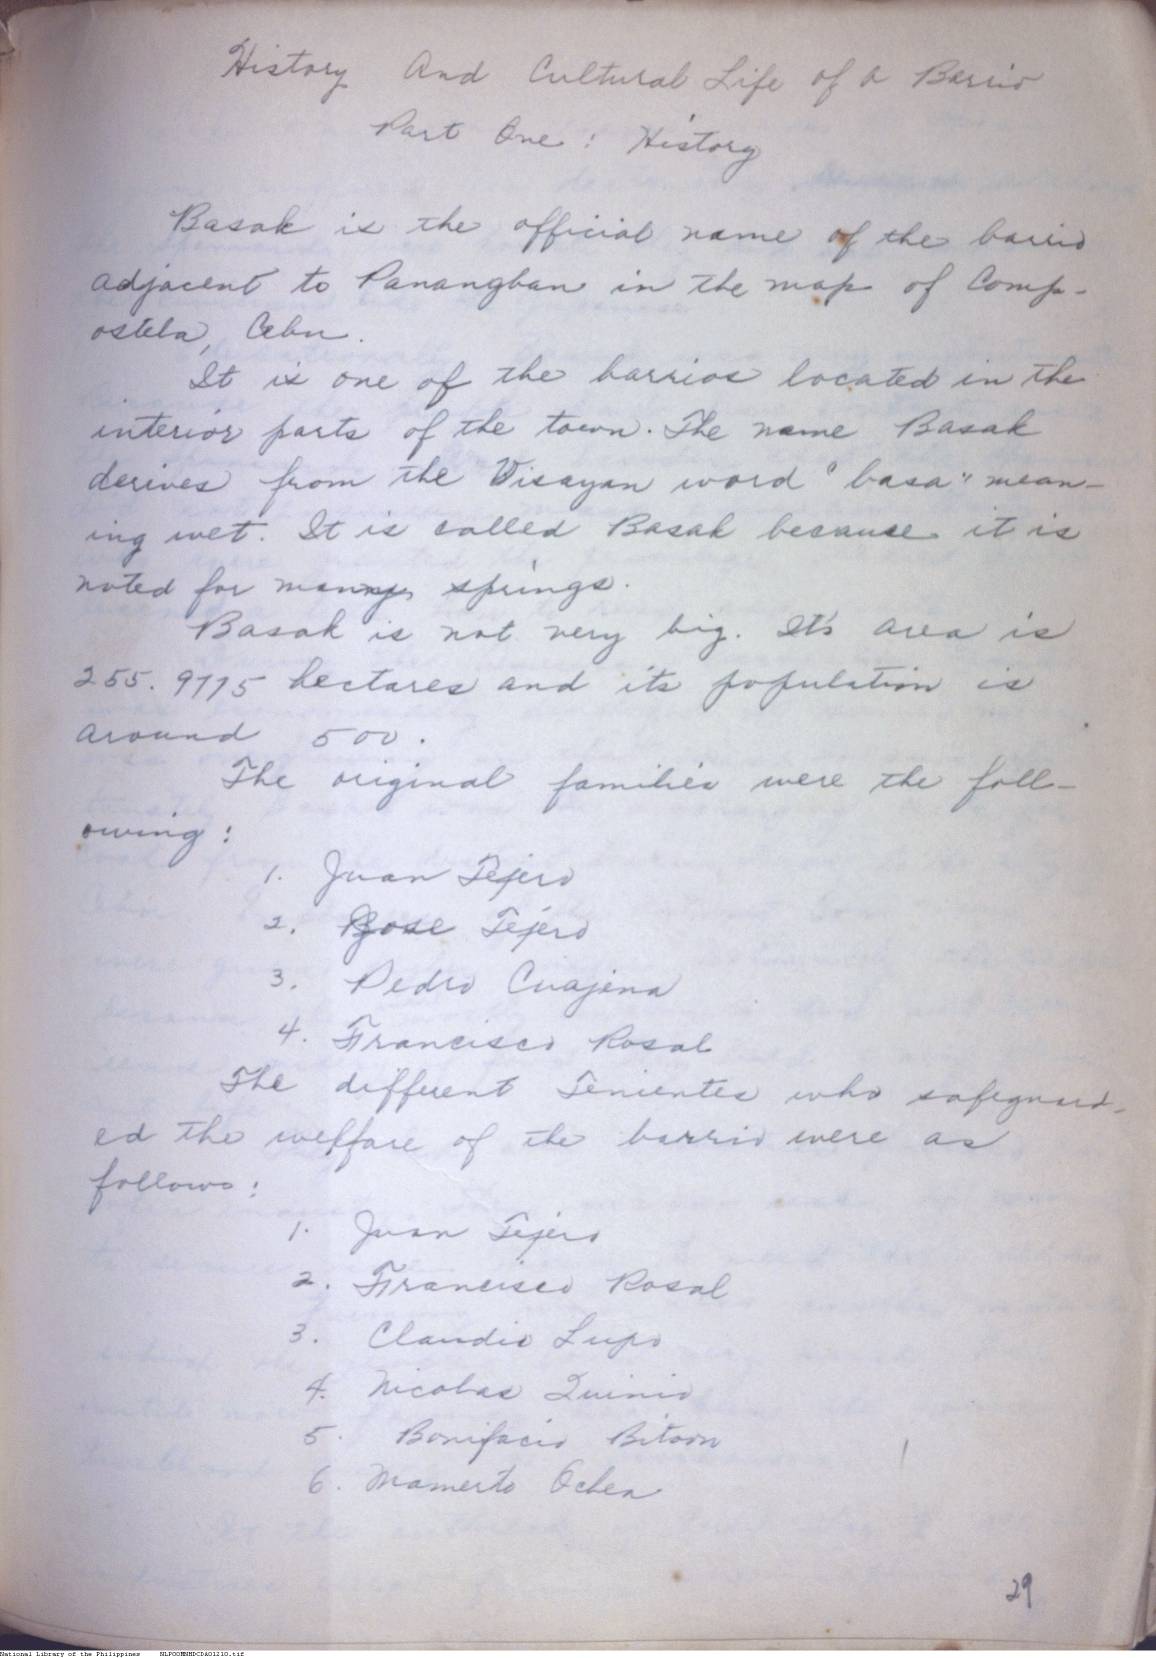 History And Cultural Life of a Barrio
Part One : History
Basak is the official name of the barrio
adjacent to Panangban in the map of Comp-
ostela, Cebu.
It is one of the barrios located in the
interior parts of the town. The name Basak
derives from the Visayan word "basa" mean-
ing wet. It is called Basak because it is
noted for many springs.
Basak is not very big. It's area is
255.9775 hectares and its population is
around 500.
The original families were the foll-
owing :
1. Juan Tejero
2. Jose Tejero
3. Pedro Cuajena
4. Francisco Rosal
The different Tenientes who safeguard-
ed the welfare of the barrio were as
follows :
1. Juan Tejero
2. Francisco Rosal
3. Claudio Lupo
4. Nicolas Quinio
5. Bonifacio Bitoon
6. Mamerto Ochea
29
National Library of the Philippines NLPOOMNHDCDA01210.tif